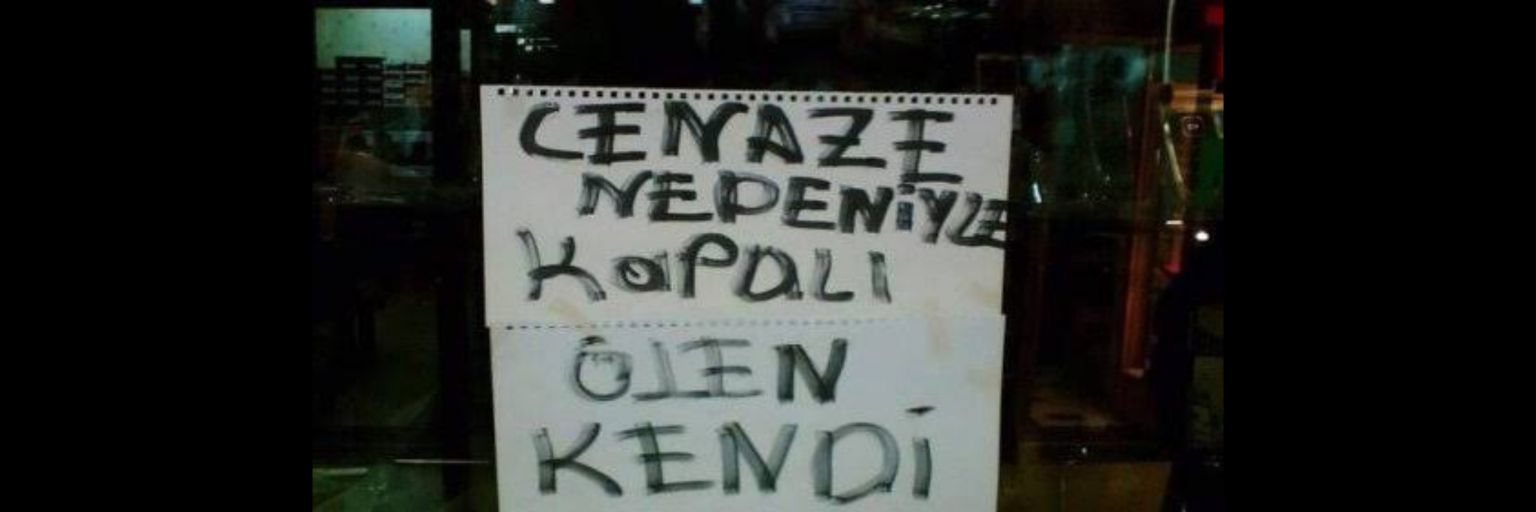 CENAZE
NEDENİYLE
KaPALI
ÖLEN
KENDİ